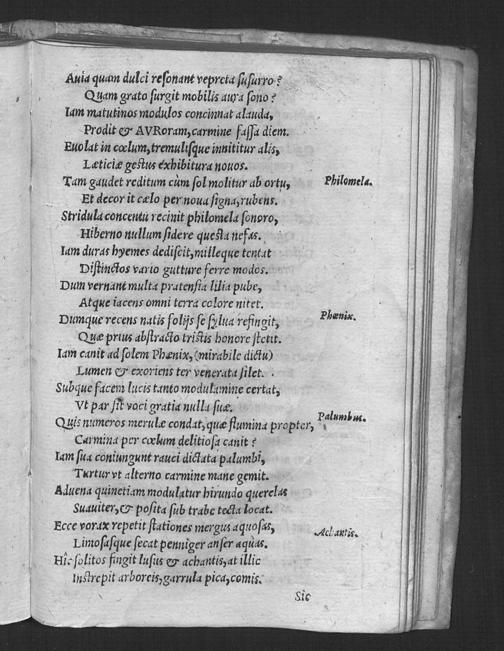 Avia quam dulci resonant vepreta susurro?
Quam grato surgit mobilis aura sono?
Iam matutinos modulos concinnat alauda,
Prodit & AVRoram, carmine fassa diem.
Evolat in cœlum, tremulisque innititur alis,
Læticiæ gestus exhibitura novos.
Tam gaudet reditum cùm sol molitur ab ortu,
Philomela.
Et decor it cælo per nova signa, rubens.
Stridula concentu recinit philomela sonoro,
Hiberno nullum sidere questa nefas.
Iam duras hyemes dediscit, milleque tentat
Distinctos vario gutture ferre modos.
Dum vernant multa pratensia lilia pube,
Atque iacens omni terra colore nitet.
Dumque recens natis folijs se sylva refingit,
Phœnix.
Quæ prius abstracto tristis honore stetit.
Iam canit ad solem Phœnix, (mirabile dictu)
Lumen & exoriens ter venerata silet.
Subque facem lucis tanto modulamine certat,
Vt par sit voci gratia nulla suæ.
Quis numeros merulæ condat, quæ flumina propter,
Palumbus.
Carmina per cœlum delitiosa canit?
Iam sua coniungunt rauci dictata palumbi,
Turtur vt alterno carmine mane gemit.
Advena quinetiam modulatur hirundo querelas
Suaviter, & posita sub trabe tecta locat.
Ecce vorax repetit stationes mergus aquosas,
Achantis.
Limosasque secat penniger anser aquas.
Hic solitos fingit lusus & achantis, at illic
Instrepit arboreis, garrula pica, comis.
Sic